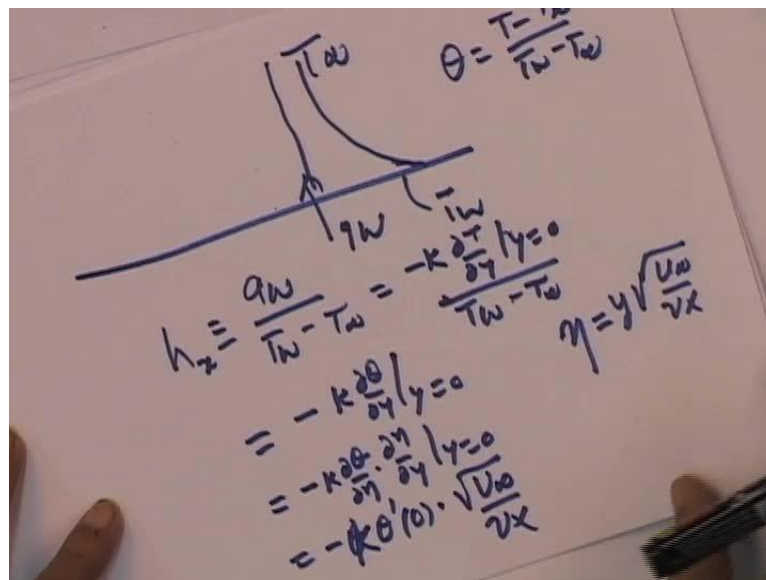 T∞
θ = (T - T∞)/(Tw - T∞)
Tw
qw
hx ≡ qw/(Tw - T∞) = (-k ∂T/∂y |y=0)/(Tw - T∞)
η = y √(U∞/νx)
= - k ∂θ/∂y |y=0
= - k ∂θ/∂η · ∂η/∂y |y=0
= - k θ'(0) · √(U∞/νx)